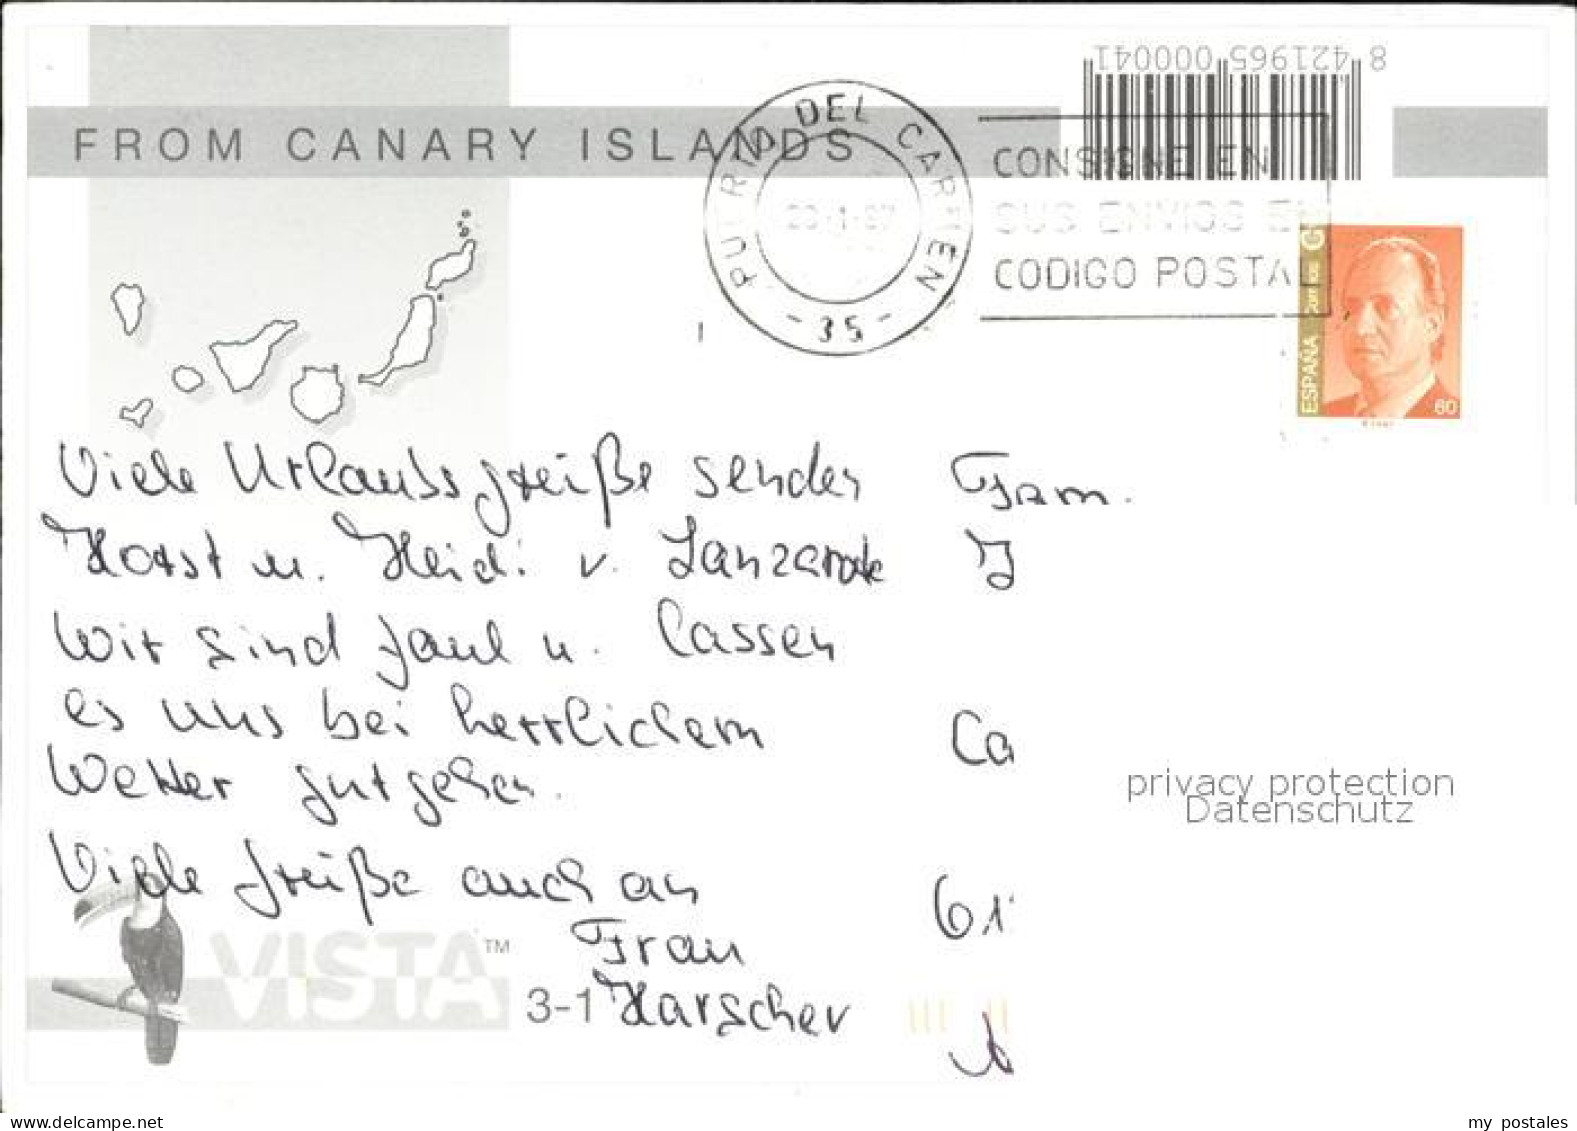 8 421965 000041
FROM CANARY ISLANDS
PUERTO DEL CARMEN
- 35 -
CONSIGNE EN
SUS ENVIOS EL
CODIGO POSTAL
ESPAÑA Correos
60
Viele Urlaubsgrüße senden
Horst u. Heidi v. Lanzarote
Wir sind faul u. lassen
es uns bei herrlichem
Wetter gutgehen.
Viele Grüße auch an
Frau
Harscher
Fam.
J
Ca
61
privacy protection
Datenschutz
VISTA™
3-1
www.delcampe.net
my_postales